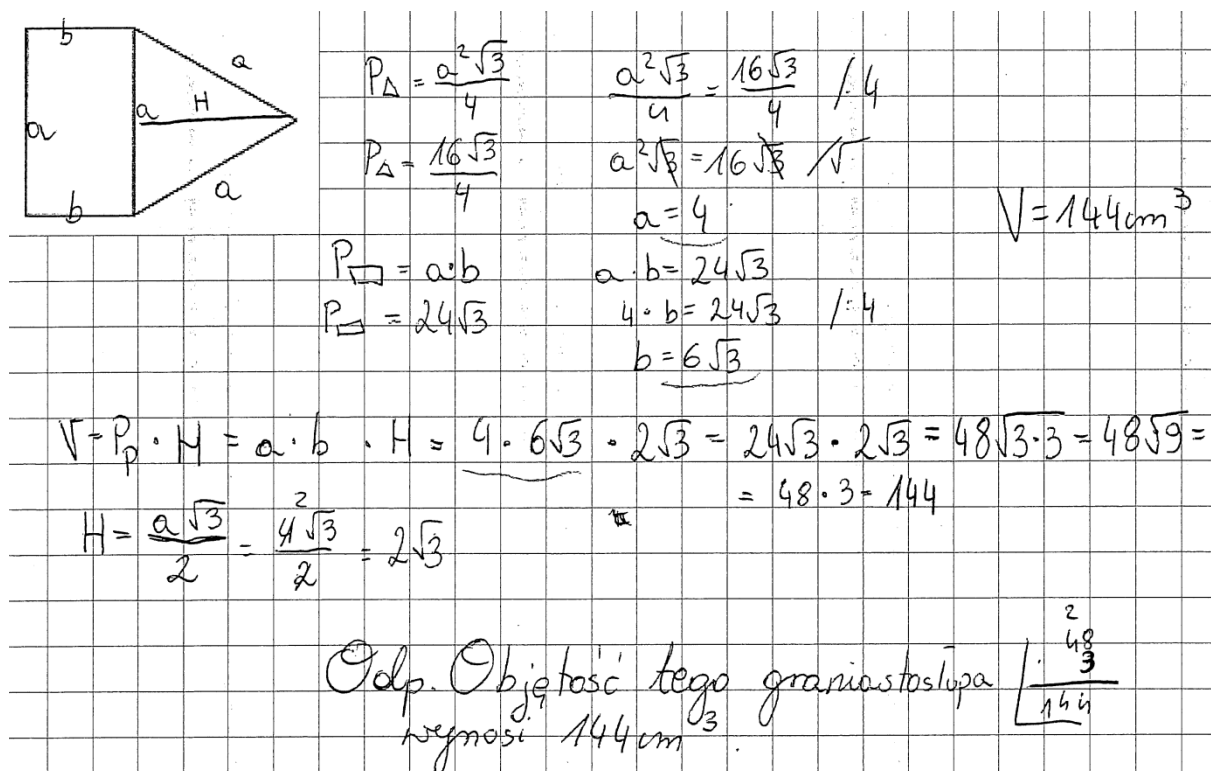 b
a
a
H
a
a
b
P△ = a²√3/4
P△ = 16√3/4
a²√3/4 = 16√3/4 /·4
a²√3 = 16√3 /√
a = 4
V = 144 cm³
P▭ = a·b
P▭ = 24√3
a·b = 24√3
4·b = 24√3 /:4
b = 6√3
V = Pp · H = a·b · H = 4·6√3 · 2√3 = 24√3 · 2√3 = 48√3·3 = 48√9 =
= 48·3 = 144
H = a√3/2 = 4√3/2 = 2√3
2
Odp. Objętość tego graniastosłupa
wynosi 144 cm³.
2
48
· 3
144